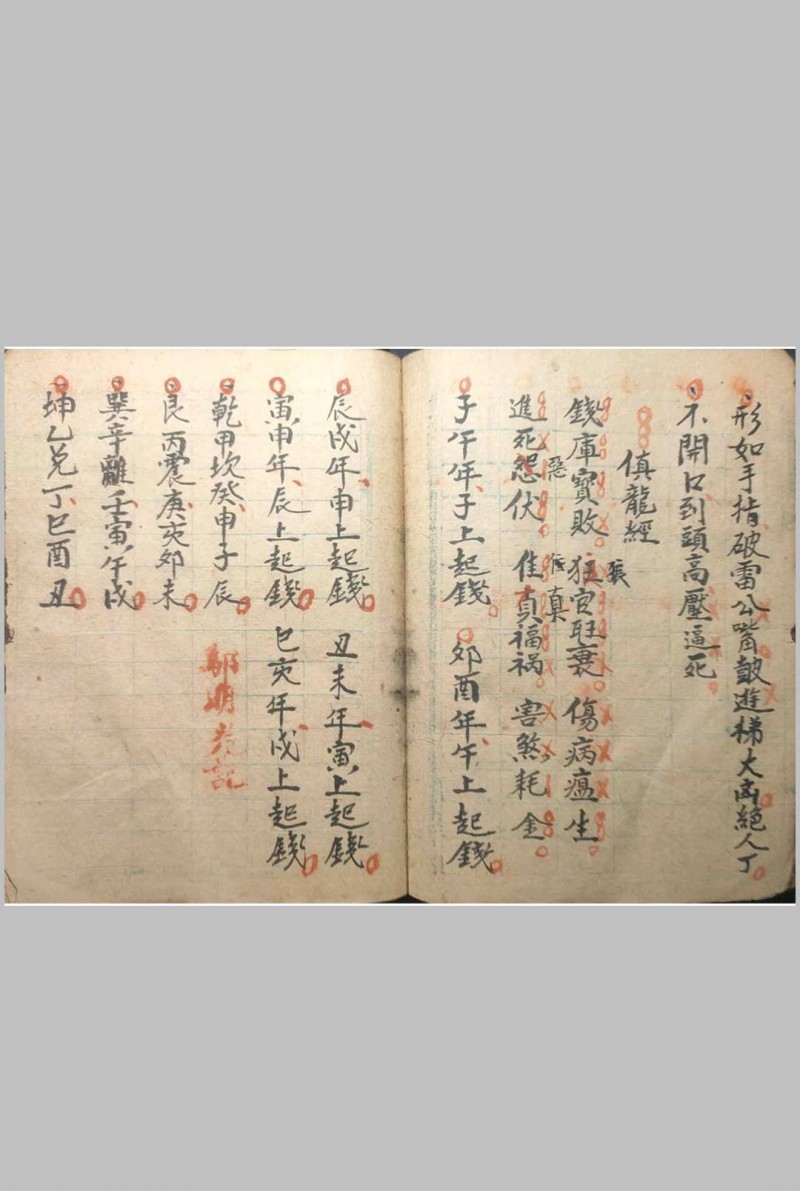 形如手指破雷公嘴鼓遊梯大高絕人丁
不開口到頭高壓逼死
慎龍經
錢庫寶敗 狂官旺衰 傷病瘟生
張
進死怨伏 隹貢福祸 害煞耗金
惡 真
子午年子上起錢 夘酉年午上起錢
辰戌年申上起錢 丑未年寅上起錢
寅申年辰上起錢 巳亥年戌上起錢
乾甲坎癸申子辰
艮丙震庚亥夘未
巽辛離壬寅午戌
坤乙兌丁巳酉丑
鄔明 記